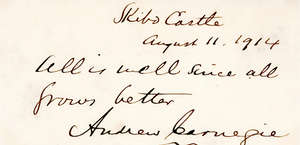 Skibo Castle
August 11. 1914
All is well since all
grows better
Andrew Carnegie